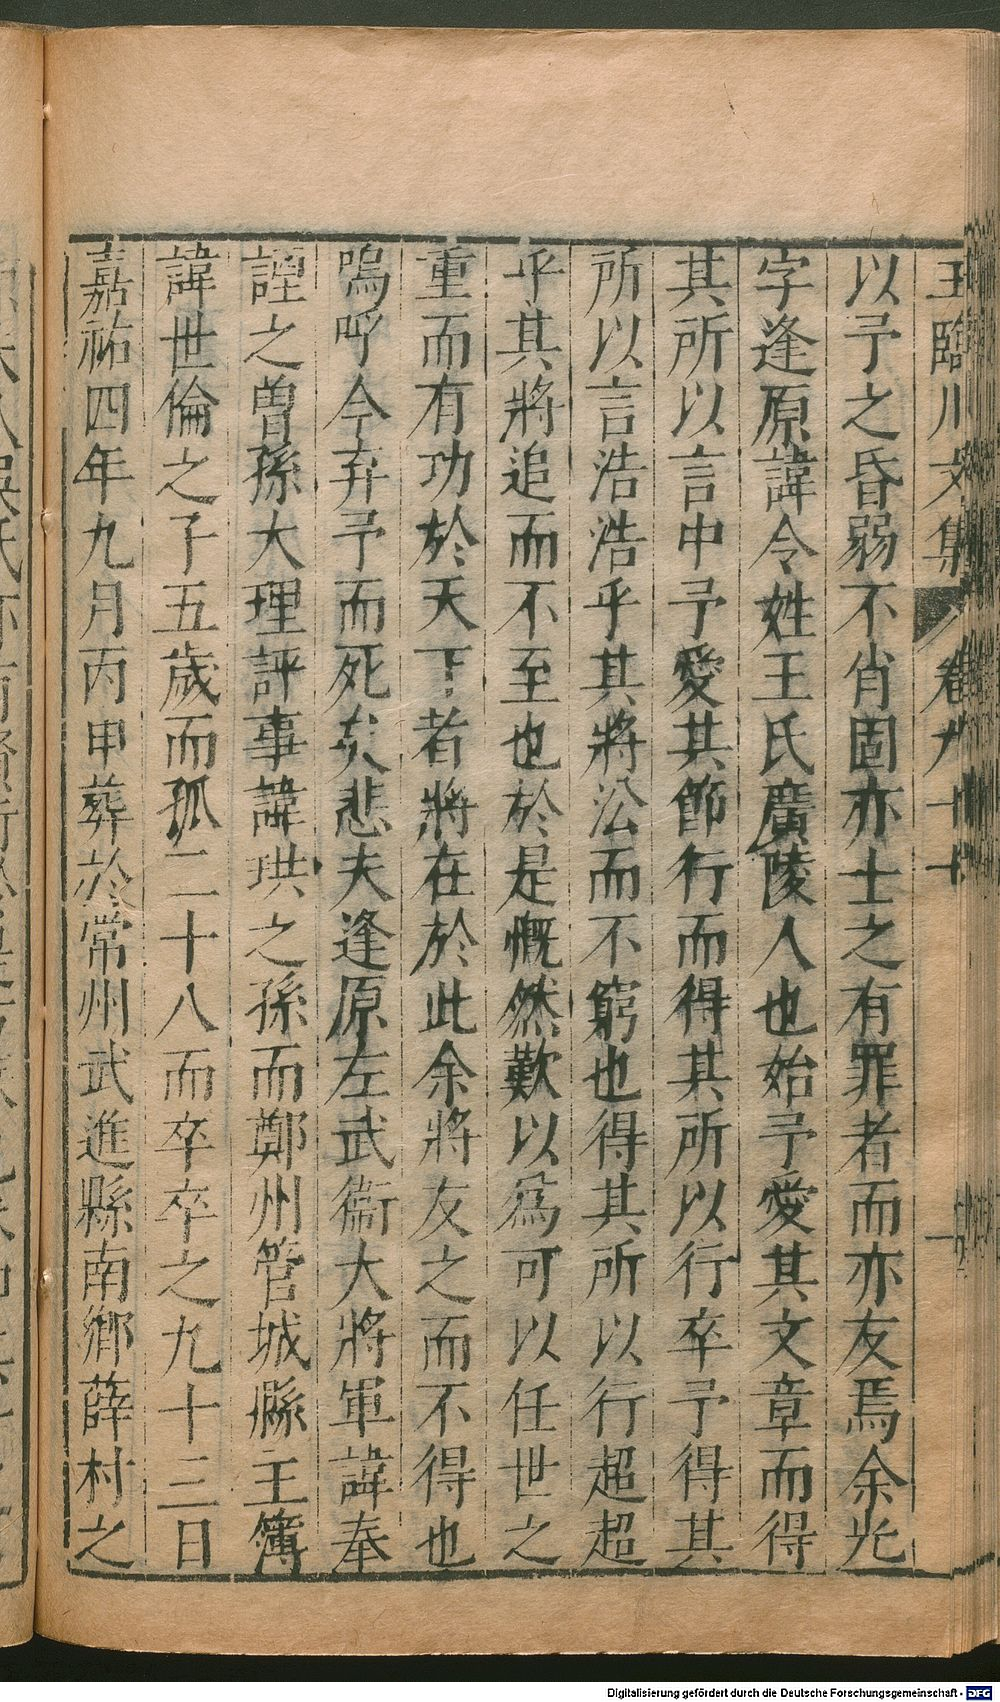 王臨川文集 卷九十七
以予之昏弱不肖固亦士之有罪者而亦友焉余光
字逢原諱令姓王氏廣陵人也始予愛其文章而得
其所以言中予愛其節行而得其所以行卒予得其
所以言浩浩乎其將㳂而不窮也得其所以行超超
乎其將追而不至也於是慨然歎以爲可以任世之
重而有功於天下者將在於此余將友之而不得也
嗚呼今弃予而死矣悲夫逢原左武衞大將軍諱奉
諲之曾孫大理評事諱珙之孫而鄭州管城縣主簿
諱世倫之子五歲而孤二十八而卒卒之九十三日
嘉祐四年九月丙申葬於常州武進縣南鄉薛村之
Digitalisierung gefördert durch die Deutsche Forschungsgemeinschaft - DFG